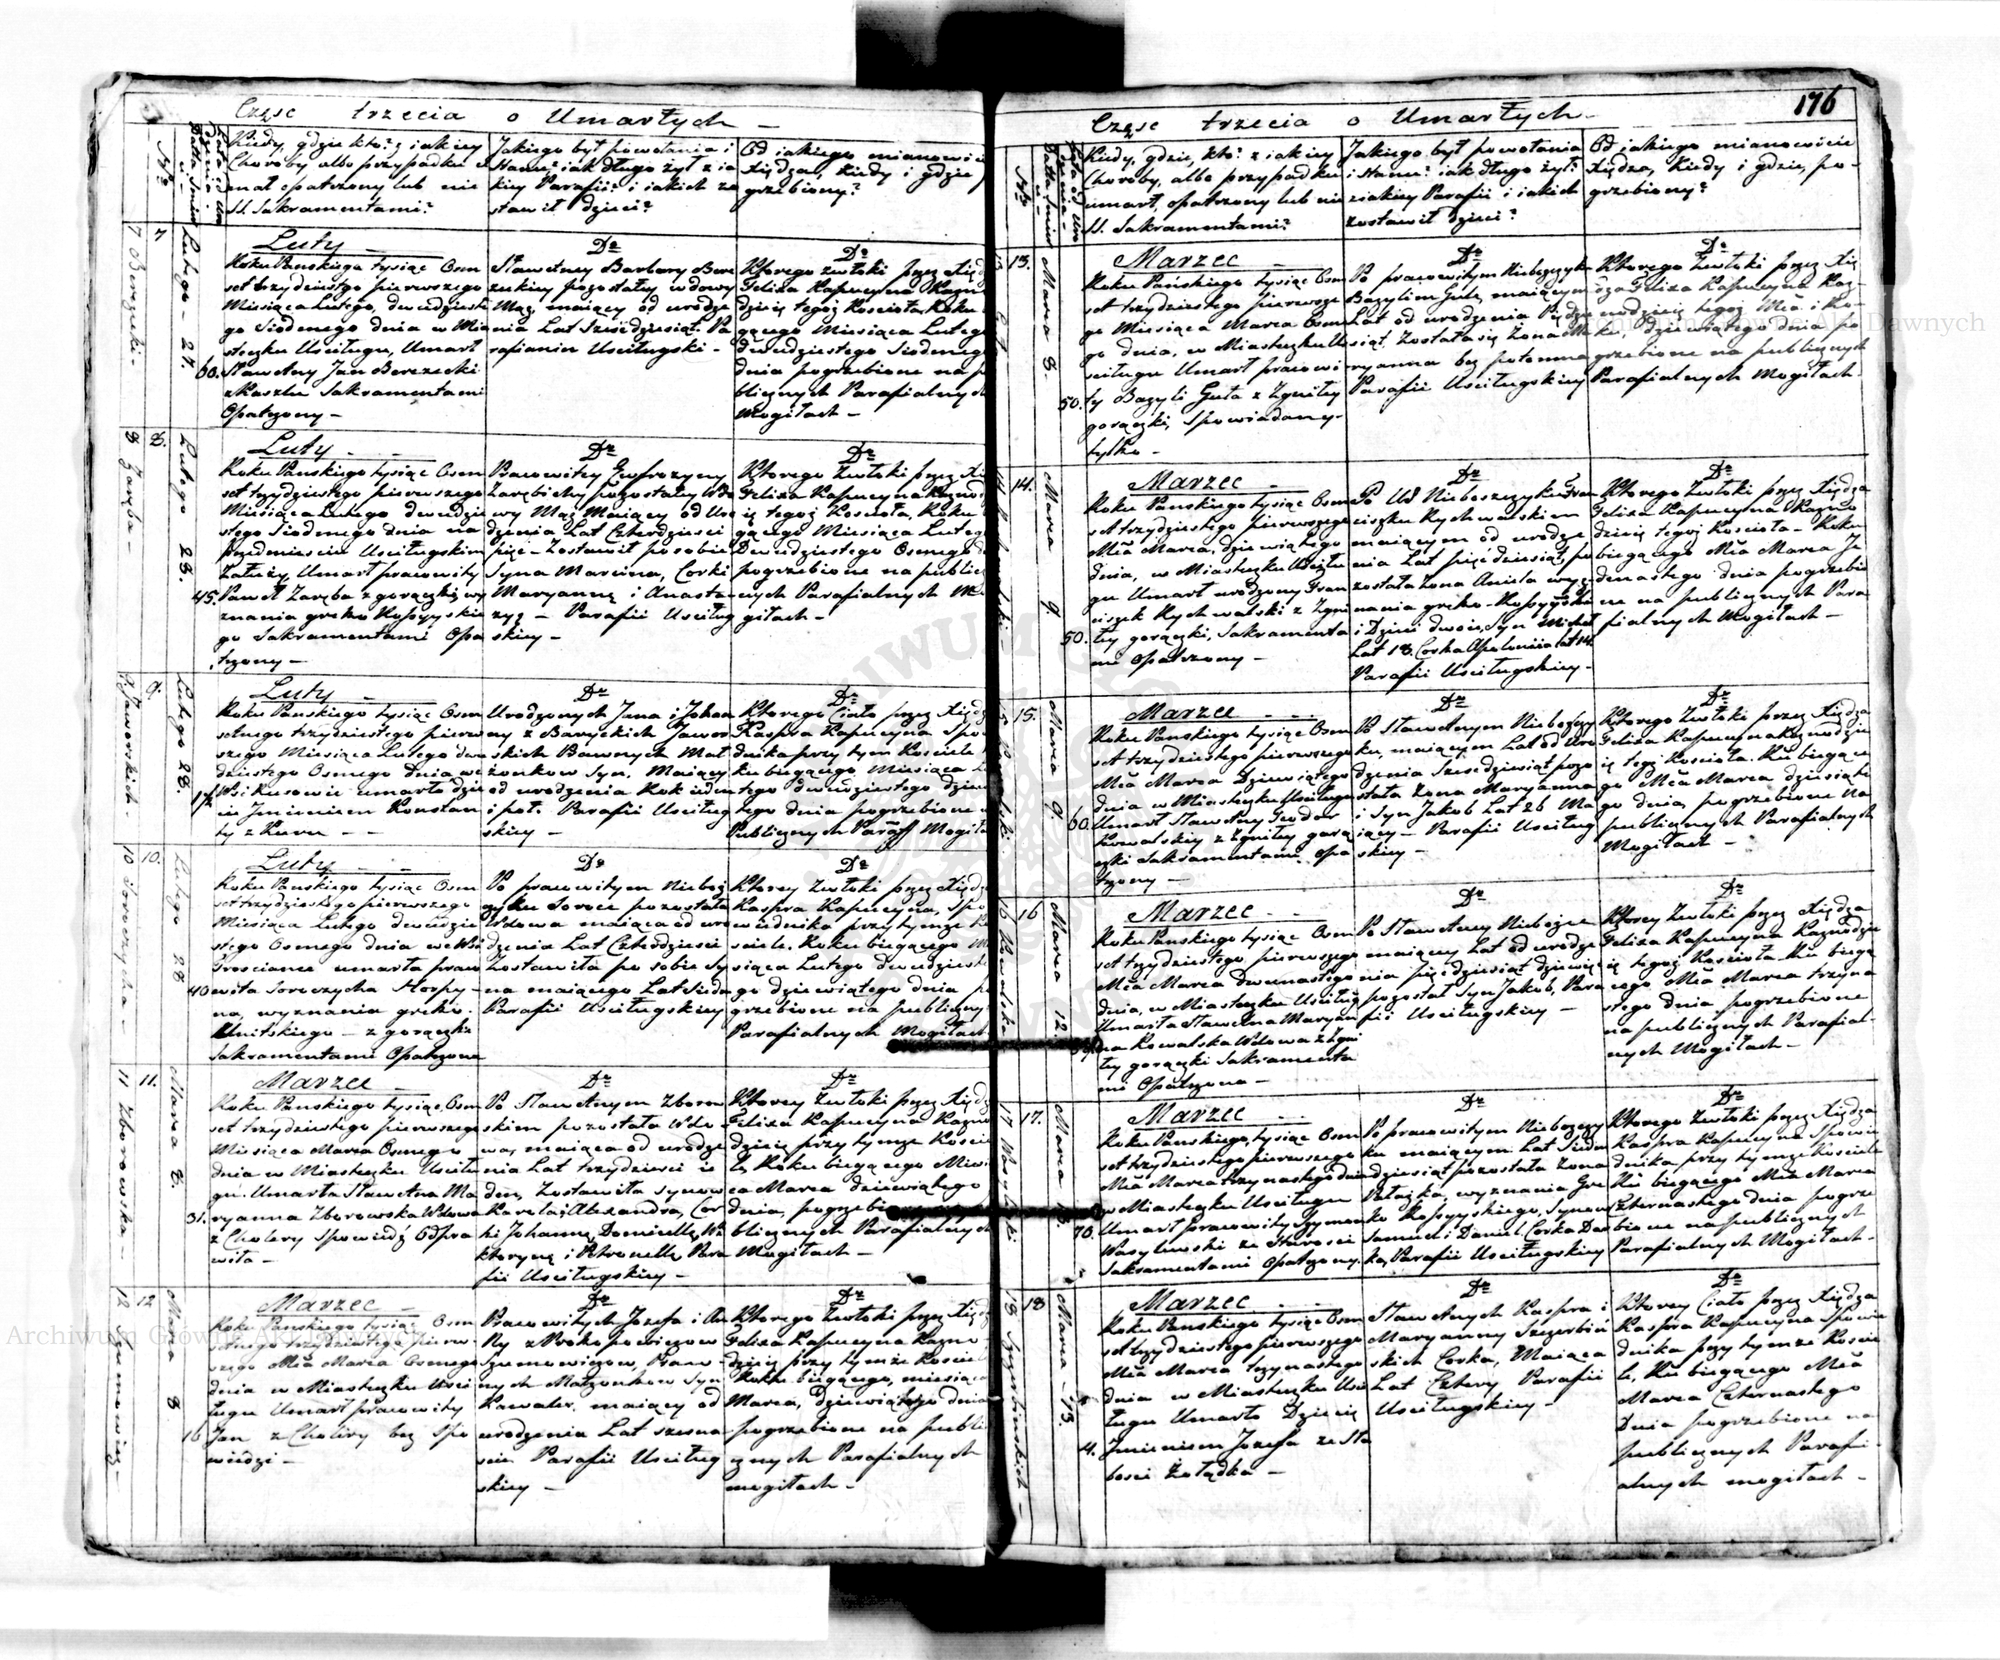 Częsc trzecia o Umarłych —
Nro
Kiedy, gdzie kto? z iakiey
Choroby albo przypadku u
marł opatrzony lub nie
SS. Sakramentami?
Jakiego był powołania i
Stanu? iak długo żył z ia
kiey Parafii? i iakich zo
stawił dzieci?
Od jakiego mianowicie
Xiędza, kiedy i gdzie
grzebiony?
7 Berezecki.
7
Lutego — 27.
60.
Luty —
Roku Panskiego tysiąc Osm
set trzydziestego pierwszego
Miesiąca Lutego, dwudzieste
go Siodmego dnia w Mia
steczku Uscilugu, Umarł
Sławetny Jan Berezecki
z Kaszlu Sakramentami
Opatrzony —
Do
Sławetney Barbary Bere
zeckiey pozostałey wdowy
Mąż maiący od urodze
nia Lat Szescdziesiąt. Pa
rafianin Usciługski —
Do
Ktorego zwłoki przez Xięd
Felixa Kapucyna Kazno
dzieię tegoż Koscioła, Roku
gącego Miesiąca Lutego
dwudziestego Siodmego
dnia pogrzebione na p
blicznych Parafialnych
Mogiłach —
8 Zaręba —
8.
Lutego 28.
45.
Luty — —
Roku Panskiego tysiąc Osm
set trzydziestego pierwszego
Miesiąca Lutego dwudzie
stego Siodmego dnia na
Przedmiesciu Usciługskim
Załuży, Umarł pracowity
Paweł Zaręba z gorączki, wy
znania greko Rossyyskie
go Sakramentami Opa
trzony —
Do
Pracowitey Eufrozyny
Zarębichy pozostałey Wdo
wy Mąż Maiący od Uro
dzenia Lat Czterdziesci
pięc — Zostawił po sobie
Syna Marcina, Corki
Maryannę i Anasta
zyę — Parafii Usciług
skiey —
Do
Ktorego Zwłoki przez Xię
Felixa Kapucyna Kaznod
ię tegoż Koscioła, Roku
gącego Miesiąca Luteg
Dwudziestego Osmego d
pogrzebione na public
znych Parafialnych Mo
giłach —
9 Jaworskich —
9.
Lutego 28.
1½
Luty —
Roku Panskiego tysiąc Osm
setnego trzydziestego pierw
szego Miesiąca Lutego dwu
dziestego Osmego Dnia we
Wsi umarło dzie
cie Jmieniem Konstan
ty z Kuru — —
Do
Urodzonych Jana i Johan
ny z Baryckich Jawor
skich Prawnych Mał
żonkow Syn, Maiący
od urodzenia Rok ieden
i poł. Parafii Usciług
skiey —
Do
Ktorego Ciało przez Xięd
Kaspra Kapucyna Spo
dnika przy tym Kosciele
ku biegącego Miesiąca L
tego dwudziestego dziew
tego dnia pogrzebione
Publicznych Paraff Mogiła
10 Soroczycha —
10.
Lutego 28
40
Luty — —
Roku Panskiego tysiąc Osm
set trzydziestego pierwszego
Miesiąca Lutego dwudzie
stego Osmego dnia we Wsi
umarła praco
wita Soroczycha Horpy —
na, wyznania greko.
Unitskiego — z gorączki
Sakramentami Opatrzona
Do
Po pracowitym Nieboż
czyku Soroce pozostała
Wdowa maiąca od uro
dzenia Lat Czterdziesci
Zostawiła po sobie Sy
na maiącego Lat Siedm
Parafii Usciługskiey
Do
Ktorey Zwłoki przez Xiędz
Kaspra Kapucyna, Spo
wiednika przy tymże K
sciele. Roku biegącego M
siąca Lutego dwudzieste
go dziewiątego dnia p
grzebione na publiczny
Parafialnych Mogiłach
11 Zborowska —
11.
Marca 8.
31.
Marzec —
Roku Panskiego tysiąc Osm
set trzydziestego pierwszego
Miesiąca Marca Osmego
dnia w Miasteczku Usciłu
gu. Umarła Sławetna Ma
ryanna Zborowska Wdowa
z Cholery Spowiedź Odpra
wiła —
Do
Po Sławetnym Zborow
skim pozostała Wdo
wa, maiąca od urodze
nia Lat trzydziesci ie
den, Zostawiła Synow
Karola i Alexandra, Cor
ki Johannę, Domicellę, Wi
ktoryę i Petronellę Para
fii Usciługskiey —
Do
Ktorey Zwłoki przez Xiędz
Felixa Kapucyna Kazno
dzieię przy tymże Koscie
le, Roku biegącego Miesi
ca Marca dziewiątego
dnia, pogrzebione
blicznych Parafialnych
Mogiłach —
12 Szumowicz —
12
Marca 8
16
Marzec —
Roku Panskiego tysiąc Osm
setnego trzydziestego pierw
szego Mca Marca Osmego
dnia w Miasteczku Usci
ługu Umarł pracowity
Jan z Cholery bez Spo
wiedzi —
Do
Pracowitych Jozefa i An
ny z Prokopowiczow
Szumowiczow, Praw
nych Małżonkow Syn
Kawaler. maiący od
urodzenia Lat szesna
scie Parafii Usciług
skiey —
Do
Ktorego Zwłoki przez Xięd
Felixa Kapucyna Kazno
dzieię przy tymże Kosciel
Roku biegącego, miesiąca
Marca, Dziewiątego dnia
pogrzebione na publi
cznych Parafialnych
mogiłach —
Częsc trzecia o Umarłych —
176
Nro
Kiedy, gdzie, kto? z iakiey
Choroby, albo przypadku
umarł, opatrzony lub nie
SS. Sakramentami?
Jakiego był powołania
i Stanu? iak długo żył?
z iakiey Parafii i iakich
zostawił dzieci?
Od jakiego mianowicie
Xiędza, kiedy i gdzie, po-
grzebiony?
13.
Marca 8
50.
Marzec —
Roku Pańskiego tysiąc Osm
set trzydziestego pierwsze
go Miesiąca Marca Osme
go dnia, w Miasteczku U
sciługu Umarł pracowi
ty Bazyli Guła z Zgniłey
gorączki, Spowiadany
tylko —
Do
Po pracowitym Nieboszczyku
Bazylim Gule, maiącym
Lat od urodzenia Pięcdzie
siąt. Została się Żona Ma
ryanna bez potomna
Parafii Usciługskiey
Do
Ktorego Zwłoki przez Xię
dza Felixa Kapucyna Kaz-
nodzieię tegoż Mca i Ro-
ku, dziewiątego dnia po
grzebione na publicznych
Parafialnych Mogiłach
14.
Marca 9.
50.
Marzec —
Roku Panskiego tysiąc Osm
set trzydziestego pierwszego
Mca Marca, dziewiątego
dnia, w Miasteczku Usciłu
gu Umarł urodzony Fran
ciszek Rychwalski z Zgni
łey gorączki, Sakramenta
mi Opatrzony —
Do
Po Ur. Nieboszczyku Fran
ciszku Rychwalskim
maiącym od urodze
nia Lat pięcdziesiąt, po
została Zona Aniela wyz
nania greko-Rossyyskie
i Dzieci dwoie, Syn Michał
Lat 18. Corka Apolonia lat 14.
Parafii Usciługskiey —
Do
Ktorego Zwłoki przez Xiędza
Felixa Kapucyna Kazno
dzieię tegoż Koscioła — Roku
biegącego Mca Marca Je
denastego dnia pogrzebio
ne na publicznych Para
fialnych Mogiłach —
15.
Marca 9.
60.
Marzec — — —
Roku Panskiego tysiąc Osm
set trzydziestego pierwszego
Mca Marca Dziewiątego
dnia w Miasteczku Usciługu
Umarł Sławetny Teodor
Kowalskiy z Zgniłey gorą
czki Sakramentami Opa
trzony —
Do
Po Sławetnym Nieboszczy
ku, maiącym Lat od Uro
dzenia Szescdziesiąt pozo
stała Zona Maryanna
i Syn Jakob Lat 26 Ma
iący — Parafii Usciług
skiey —
Do
Ktorego Zwłoki przez Xiędza
Felixa Kapucyna Kaznodzie
ię tegoż Koscioła. Ru biegące
go Mca Marca dziesiąte
go dnia, pogrzebione na
publicznych Parafialnych
Mogiłach —
16 Kowalska
16
Marca 12
Marzec — —
Roku Panskiego tysiąc Osm
set trzydziestego pierwszego
Mca Marca dwunastego
dnia, w Miasteczku Usciług
Umarła Sławetna Maryan
na Kowalska Wdowa z Zgni
łey gorączki Sakramenta
mi Opatrzona —
Do
Po Sławetny Nieboszce
maiącey Lat od urodze
nia pięcdziesiąt dziewięc
pozostał Syn Jakob, Para
fii Usciługskiey —
Do
Ktorey Zwłoki przez Xiędza
Felixa Kapucyna Kaznodzie
ię tegoż Koscioła Ru biegą
cego Mca Marca trzyna
stego dnia pogrzebione
na publicznych Parafial-
nych Mogiłach —
17
17.
Marca 13.
70.
Marzec — —
Roku Panskiego, tysiąc Osm
set trzydziestego pierwszego
Mca Marca trzynastego dnia
w Miasteczku Usciługu
Umarł Pracowity Szymon
Wasylewski ze Starosci
Sakramentami Opatrzony.
Do
Po pracowitym Nieboszczy
ku maiącym Lat Siedm
dziesiąt pozostała Zona
Pałazka, wyznania Gre
ko Rossyyskiego, Synow
Samuel i Daniel. Corka
Parafii Usciługskiey
Do
Ktorego Zwłoki przez Xiędza
Kaspra Kapucyna Spowie
dnika przy tymże Kosciele
Ru biegącego Mca Marca
Czternastego dnia pogrze
bione na publicznych
Parafialnych Mogiłach —
18 Szczerbińskich —
18
Marca — 13.
4.
Marzec — — —
Roku Panskiego tysiąc Osm
set trzydziestego pierwszego
Mca Marca trzynastego
dnia w Miasteczku Usci
ługu Umarło Dziecię
Jmieniem Jozefa ze Sła
bosci Żołądka —
Do
Sławetnych Kaspra i
Maryanny Szczerbiń
skich Corka, Maiąca
Lat Cztery Parafii
Usciługskiey —
Do
Ktorey Ciało przez Xiędza
Kaspra Kapucyna Spowie
dnika przy tymże Koscie
le, Ru biegącego Mca
Marca Czternastego
Dnia pogrzebione na
publicznych Parafi-
alnych mogiłach —
Archiwum Główne Akt Dawnych
Archiwum Główne Akt Dawnych